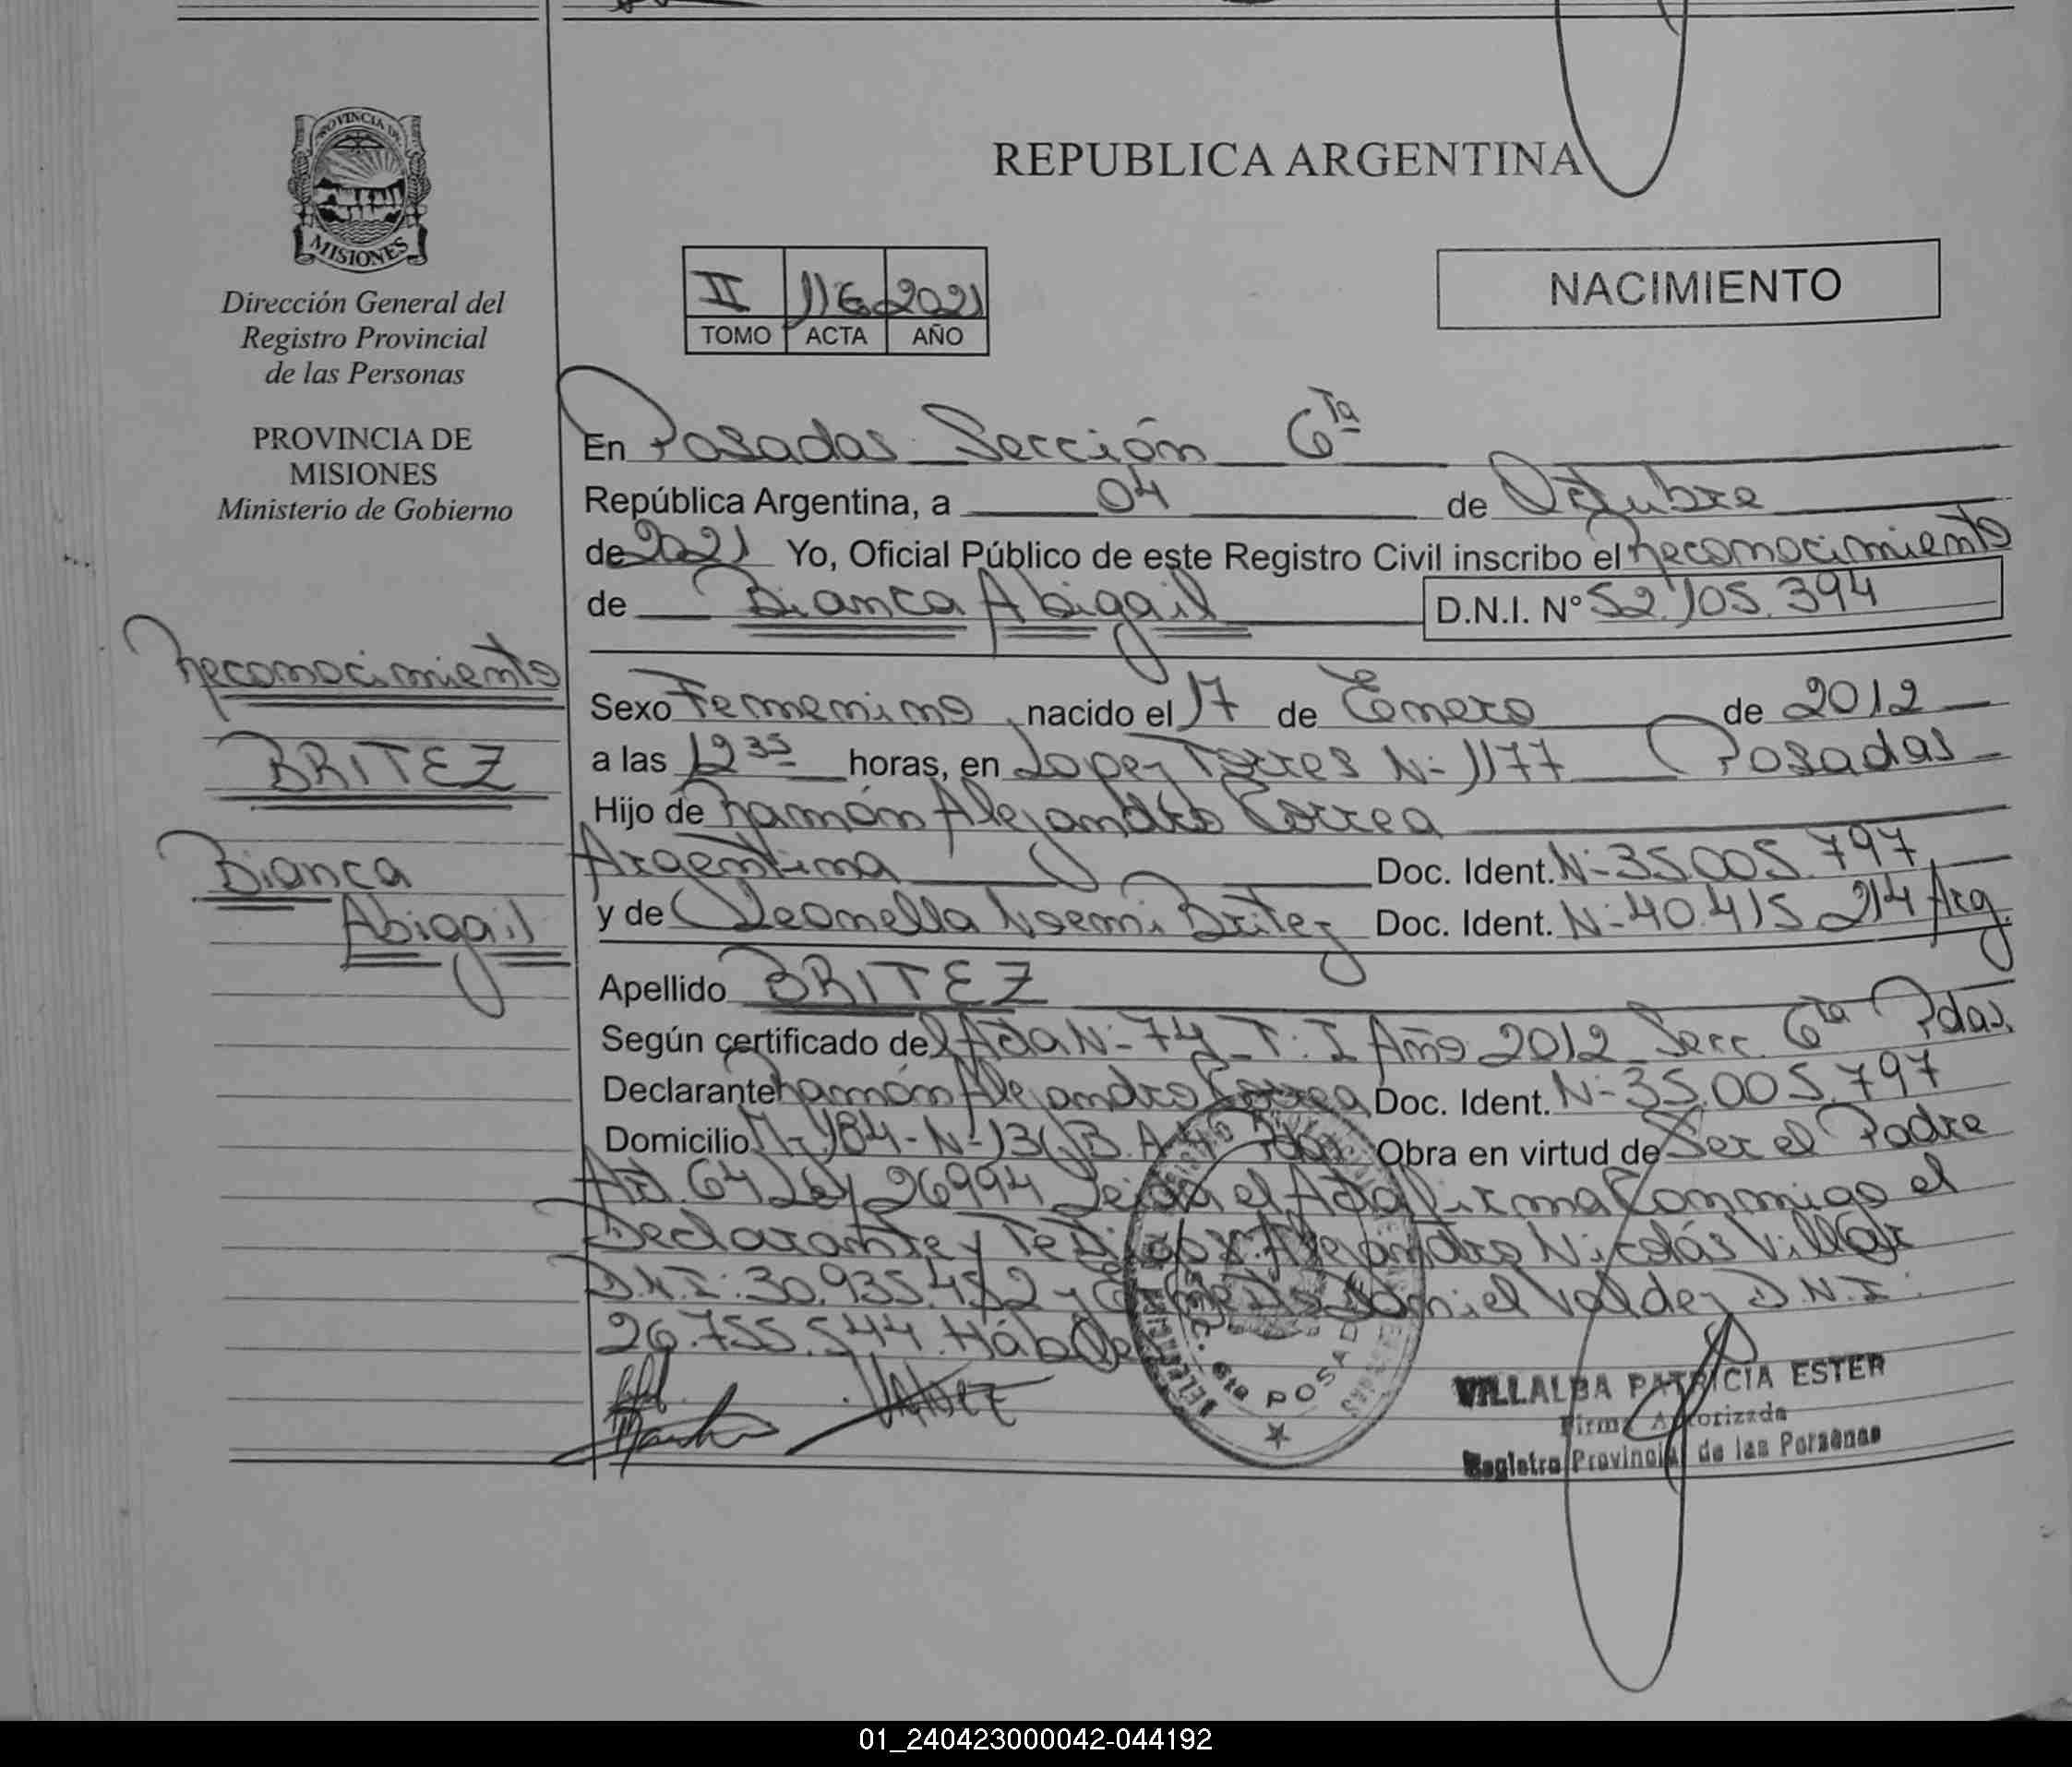 PROVINCIA DE
MISIONES
Dirección General del
Registro Provincial
de las Personas
PROVINCIA DE
MISIONES
Ministerio de Gobierno
Reconocimiento
BRITEZ
Bianca
Abigail
REPUBLICA ARGENTINA
II 116 2021
TOMO ACTA AÑO
NACIMIENTO
En Posadas Sección 6ta
República Argentina, a 04 de Octubre
de 2021 Yo, Oficial Público de este Registro Civil inscribo el Reconocimiento
de Bianca Abigail D.N.I. N° 52.105.394
Sexo Femenino, nacido el 17 de Enero de 2012
a las 12 35 horas, en Lopez Torres N- 1177 Posadas
Hijo de Ramón Alejandro Correa
Argentina Doc. Ident. N- 35.005.797
y de Leonella Noemi Britez Doc. Ident. N- 40.415.214 Arg.
Apellido BRITEZ
Según certificado del Acta N- 74 T: I Año 2012 Secc. 6ta Pdas.
Declarante Ramón Alejandro Correa Doc. Ident. N- 35.005.797
Domicilio Obra en virtud de Ser el Padre
Art. 64 Ley 26994 Leida el Acta Firma Conmigo el
Declarante y Testigos: Alejandro Nicolás Villar
D.N.I: 30.935.452 y Daniel Valdez D.N.I:
26.755.544 Hábiles
VALDEZ
SEC. 6ta POSADAS
VILLALBA PATRICIA ESTER
Firma Autorizada
Registro Provincial de las Personas
01_240423000042-044192